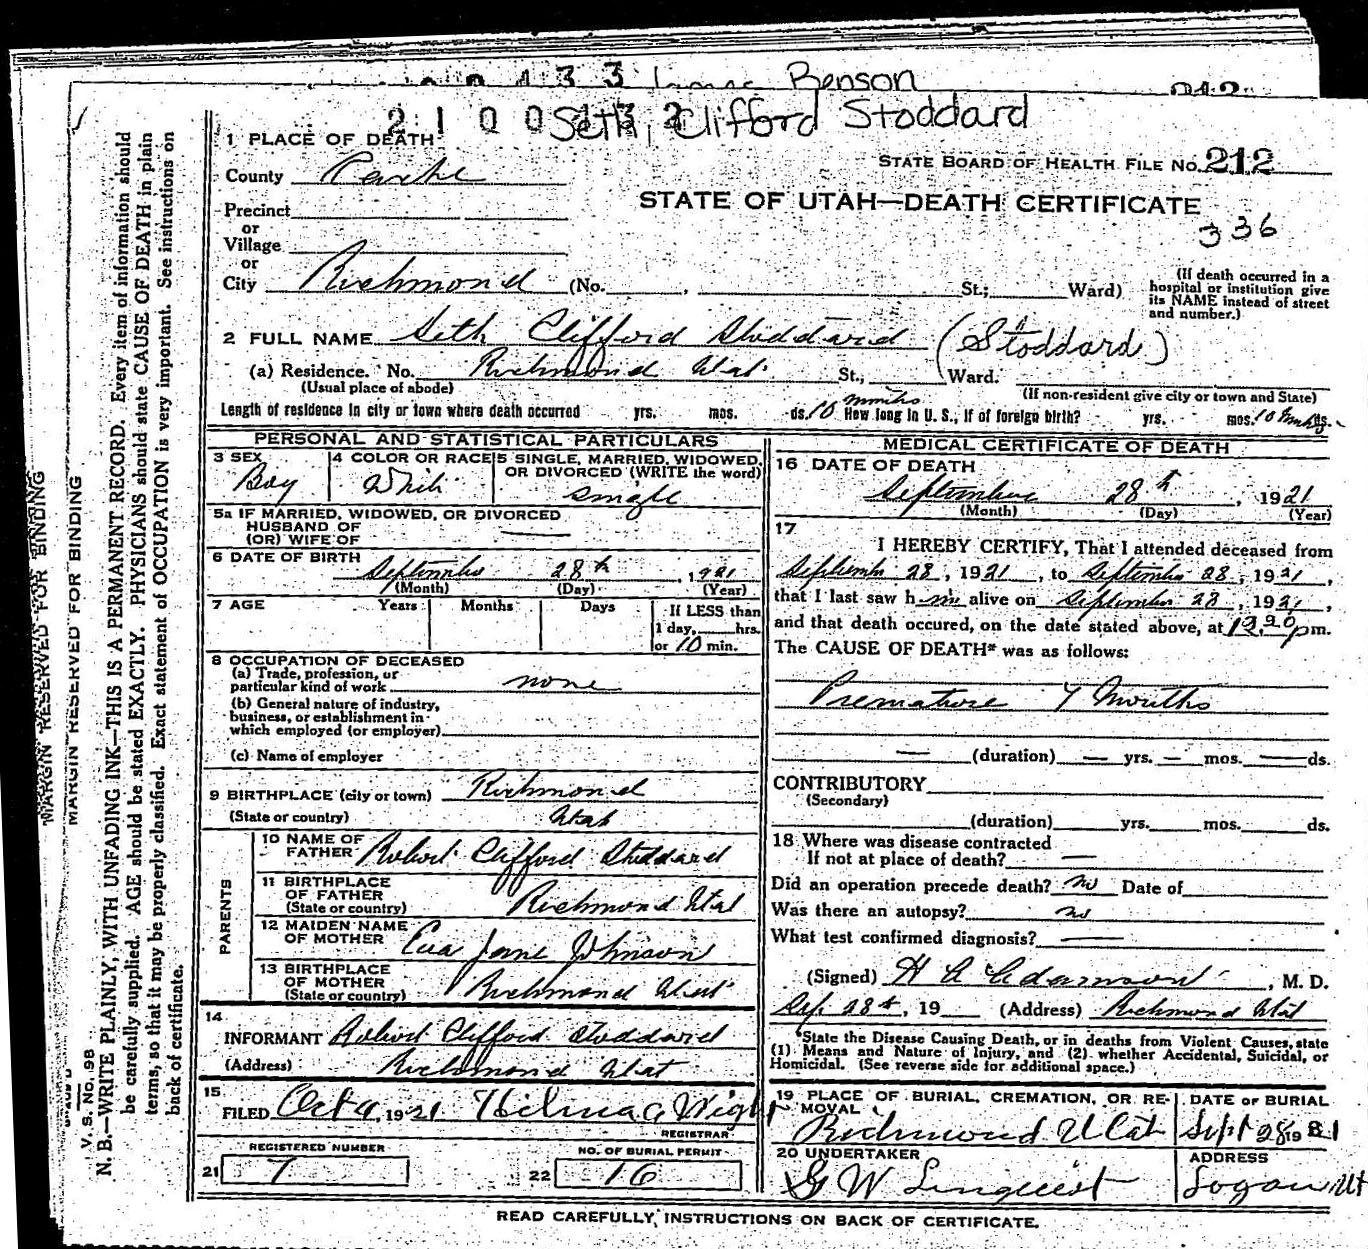 Benson
2 1 0 0 1 3 2
Seth, Clifford Stoddard
1 PLACE OF DEATH
STATE BOARD OF HEALTH FILE No. 212
County Cache
STATE OF UTAH—DEATH CERTIFICATE
336
Precinct
or
Village
or
City Richmond (No. , St.; Ward)
(If death occurred in a
hospital or institution give
its NAME instead of street
and number.)
2 FULL NAME Seth Clifford Stoddard (Stoddard)
(a) Residence. No. Richmond Utah St., Ward.
(Usual place of abode) (If non-resident give city or town and State)
Length of residence in city or town where death occurred yrs. mos. ds. 10 minutes How long in U. S., if of foreign birth? yrs. mos. 10 ds.
PERSONAL AND STATISTICAL PARTICULARS
3 SEX Boy
4 COLOR OR RACE White
5 SINGLE, MARRIED, WIDOWED,
OR DIVORCED (WRITE the word)
single
5a IF MARRIED, WIDOWED, OR DIVORCED
HUSBAND OF
(OR) WIFE OF
6 DATE OF BIRTH
September 28th, 1921
(Month) (Day) (Year)
7 AGE Years Months Days If LESS than
1 day, hrs.
or 10 min.
8 OCCUPATION OF DECEASED
(a) Trade, profession, or
particular kind of work none
(b) General nature of industry,
business, or establishment in
which employed (or employer)
(c) Name of employer
9 BIRTHPLACE (city or town) Richmond
(State or country) Utah
PARENTS
10 NAME OF
FATHER Robert Clifford Stoddard
11 BIRTHPLACE
OF FATHER
(State or country) Richmond Utah
12 MAIDEN NAME
OF MOTHER Eva Jane Johnson
13 BIRTHPLACE
OF MOTHER
(State or country) Richmond Utah
14
INFORMANT Robert Clifford Stoddard
(Address) Richmond Utah
15
FILED Oct 4, 1921 Hilma G Wight
REGISTRAR
REGISTERED NUMBER
21 7
NO. OF BURIAL PERMIT
22 16
MEDICAL CERTIFICATE OF DEATH
16 DATE OF DEATH
September 28th, 1921
(Month) (Day) (Year)
17
I HEREBY CERTIFY, That I attended deceased from
September 28, 1921, to September 28, 1921,
that I last saw him alive on September 28, 1921,
and that death occured, on the date stated above, at 12.20 pm.
The CAUSE OF DEATH* was as follows:
Premature 7 Months
— (duration) — yrs. — mos. — ds.
CONTRIBUTORY
(Secondary)
(duration) yrs. mos. ds.
18 Where was disease contracted
If not at place of death? —
Did an operation precede death? no Date of
Was there an autopsy? no
What test confirmed diagnosis? —
(Signed) H A Adamson, M. D.
Sep. 28th, 19 (Address) Richmond Utah
*State the Disease Causing Death, or in deaths from Violent Causes, state
(1) Means and Nature of Injury, and (2) whether Accidental, Suicidal, or
Homicidal. (See reverse side for additional space.)
19 PLACE OF BURIAL, CREMATION, OR RE-
MOVAL
Richmond Utah
DATE OF BURIAL
Sept 28 1921
20 UNDERTAKER
G W Linquist
ADDRESS
Logan Ut
READ CAREFULLY, INSTRUCTIONS ON BACK OF CERTIFICATE.
MARGIN RESERVED FOR BINDING
MARGIN RESERVED FOR BINDING
V. S. No. 98
N. B.—WRITE PLAINLY, WITH UNFADING INK—THIS IS A PERMANENT RECORD. Every item of information should
be carefully supplied. AGE should be stated EXACTLY. PHYSICIANS should state CAUSE OF DEATH in plain
terms, so that it may be properly classified. Exact statement of OCCUPATION is very important. See instructions on
back of certificate.